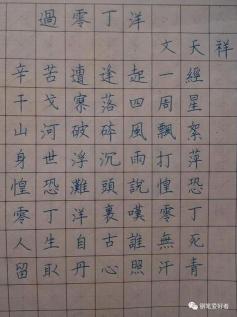 過零丁洋
文天祥
辛苦遭逢起一經
干戈寥落四周星
山河破碎風飄絮
身世浮沉雨打萍
惶恐灘頭說惶恐
零丁洋裏嘆零丁
人生自古誰無死
留取丹心照汗青
钢笔爱好者